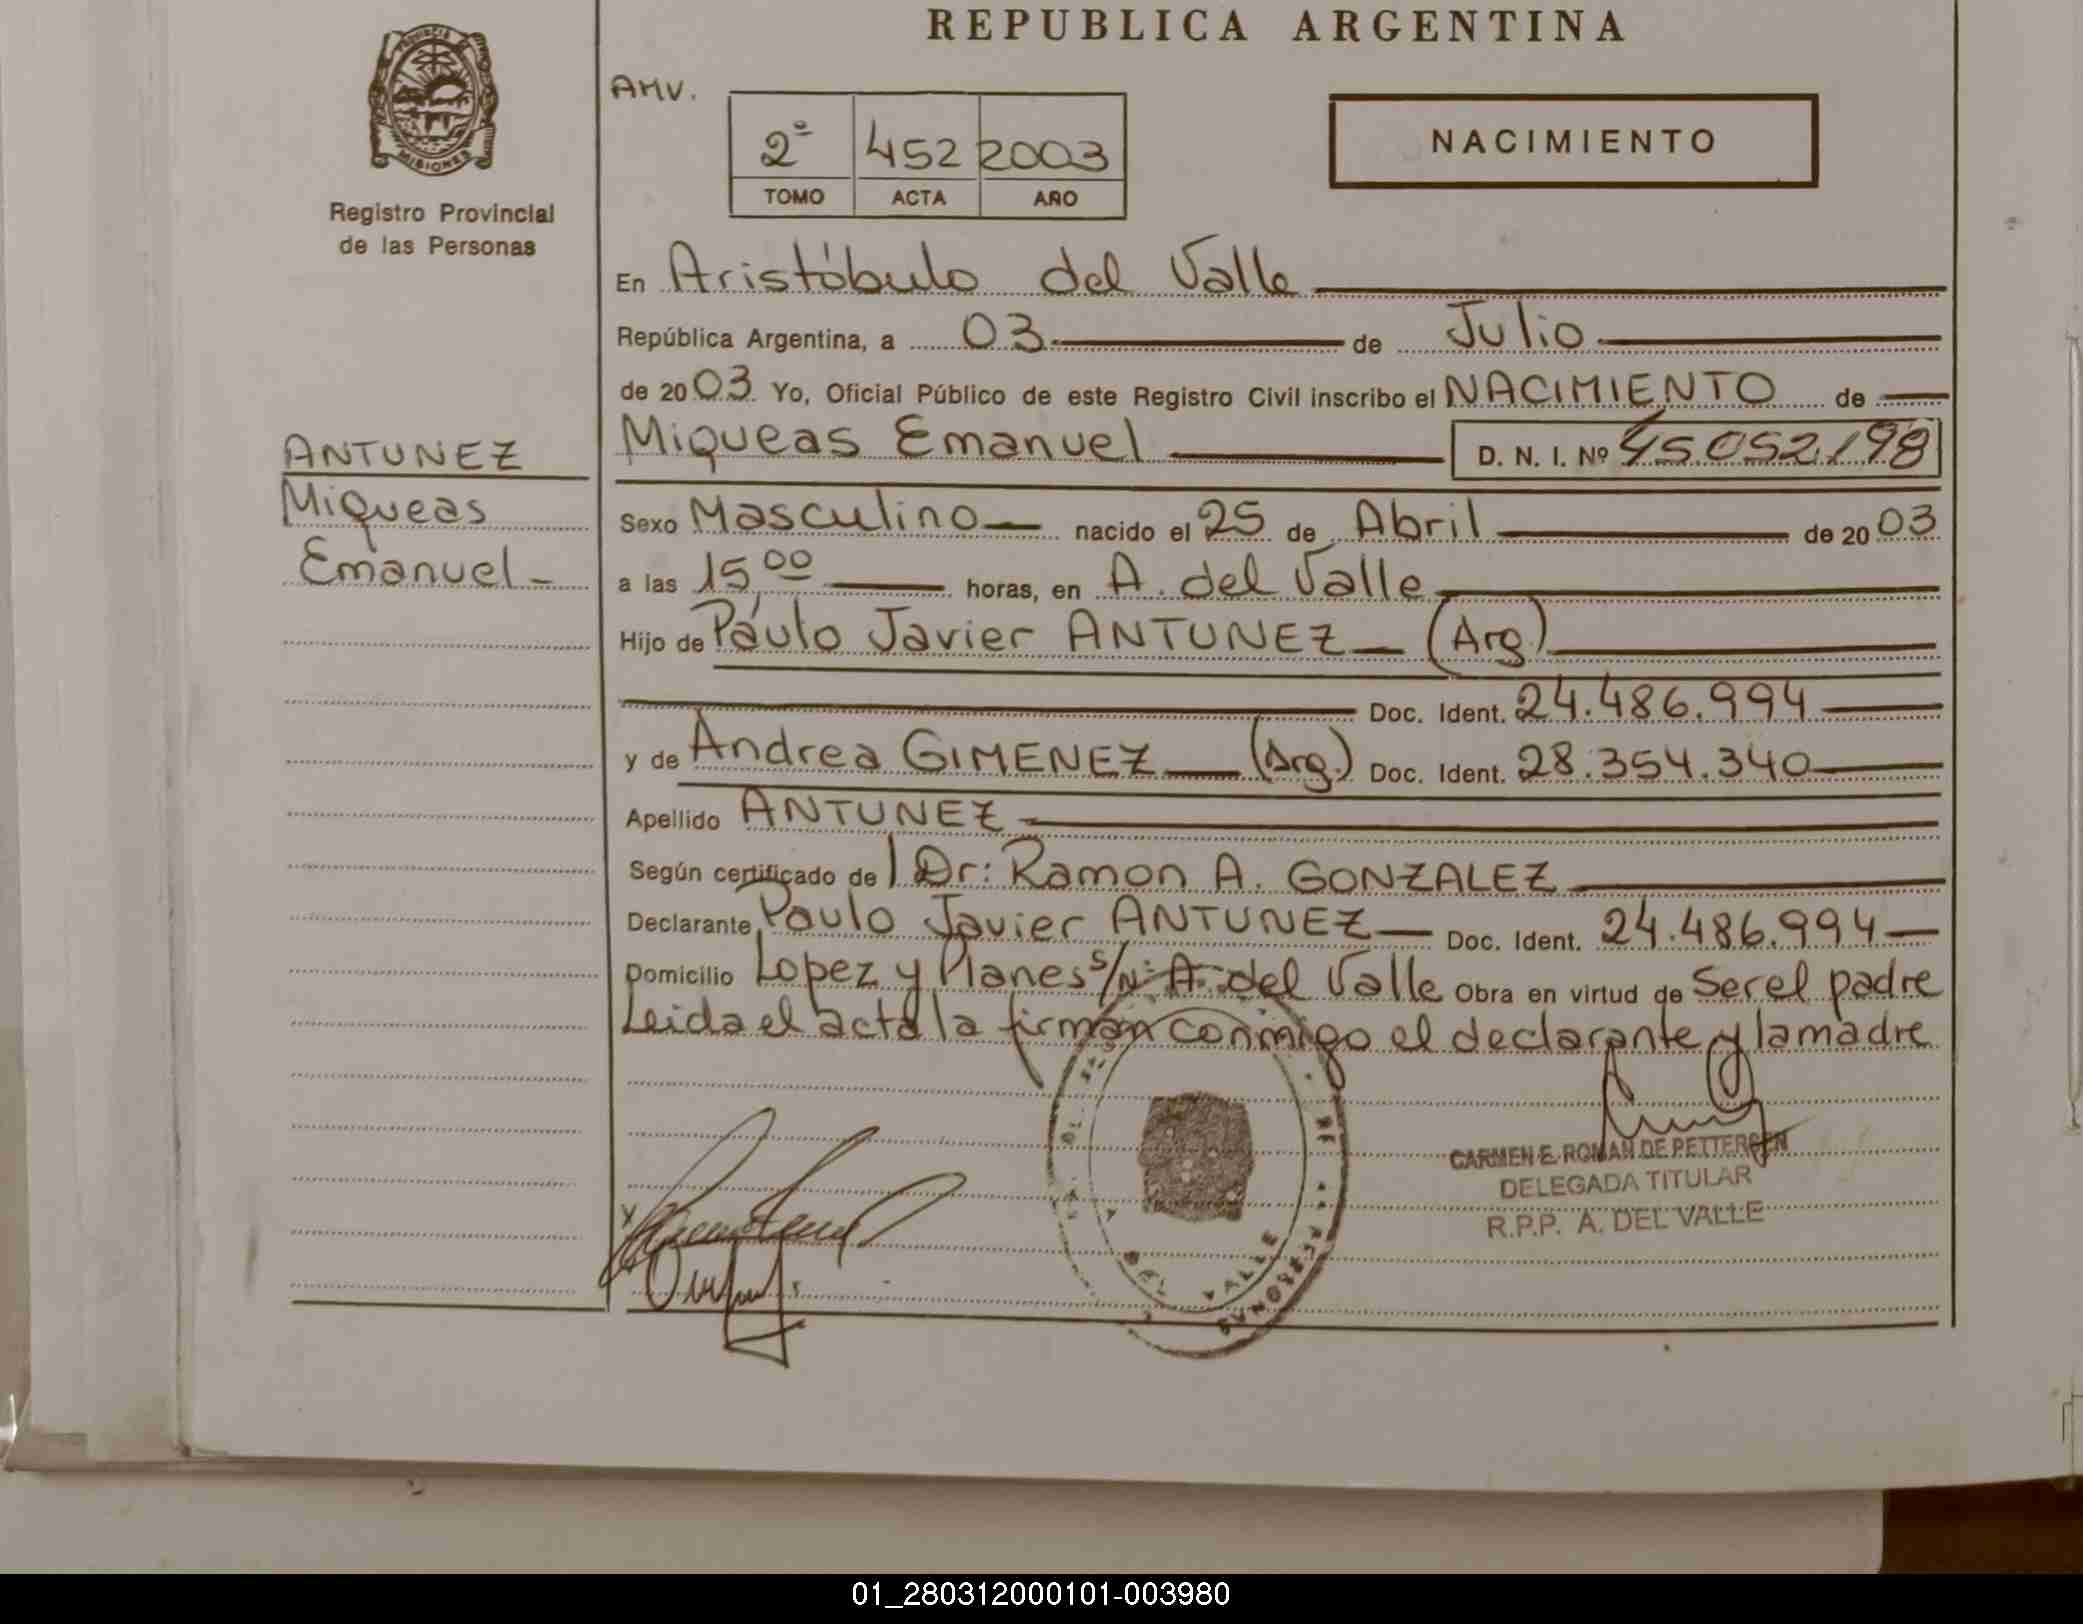 REPUBLICA ARGENTINA
PROVINCIA DE
MISIONES
Registro Provincial
de las Personas
AMV.
2º 452 2003
TOMO ACTA AÑO
NACIMIENTO
En Aristóbulo del Valle
República Argentina, a 03 de Julio
de 2003 Yo, Oficial Público de este Registro Civil inscribo el NACIMIENTO de
Miqueas Emanuel D. N. I. Nº 45052198
ANTUNEZ
Miqueas
Emanuel-
Sexo Masculino nacido el 25 de Abril de 2003
a las 15,00 horas, en A. del Valle
Hijo de Paulo Javier ANTUNEZ (Arg)
Doc. Ident. 24.486.994
y de Andrea GIMENEZ (Arg.) Doc. Ident. 28.354.340
Apellido ANTUNEZ
Según certificado de Dr: Ramon A. GONZALEZ
Declarante Paulo Javier ANTUNEZ Doc. Ident. 24.486.994
Domicilio Lopez y Planes s/Nº A. del Valle Obra en virtud de Ser el padre
Leida el acta la firman conmigo el declarante y la madre
DEL VALLE
PERSONAS
CARMEN E. ROMAN DE PETTERSEN
DELEGADA TITULAR
R.P.P. A. DEL VALLE
01_280312000101-003980